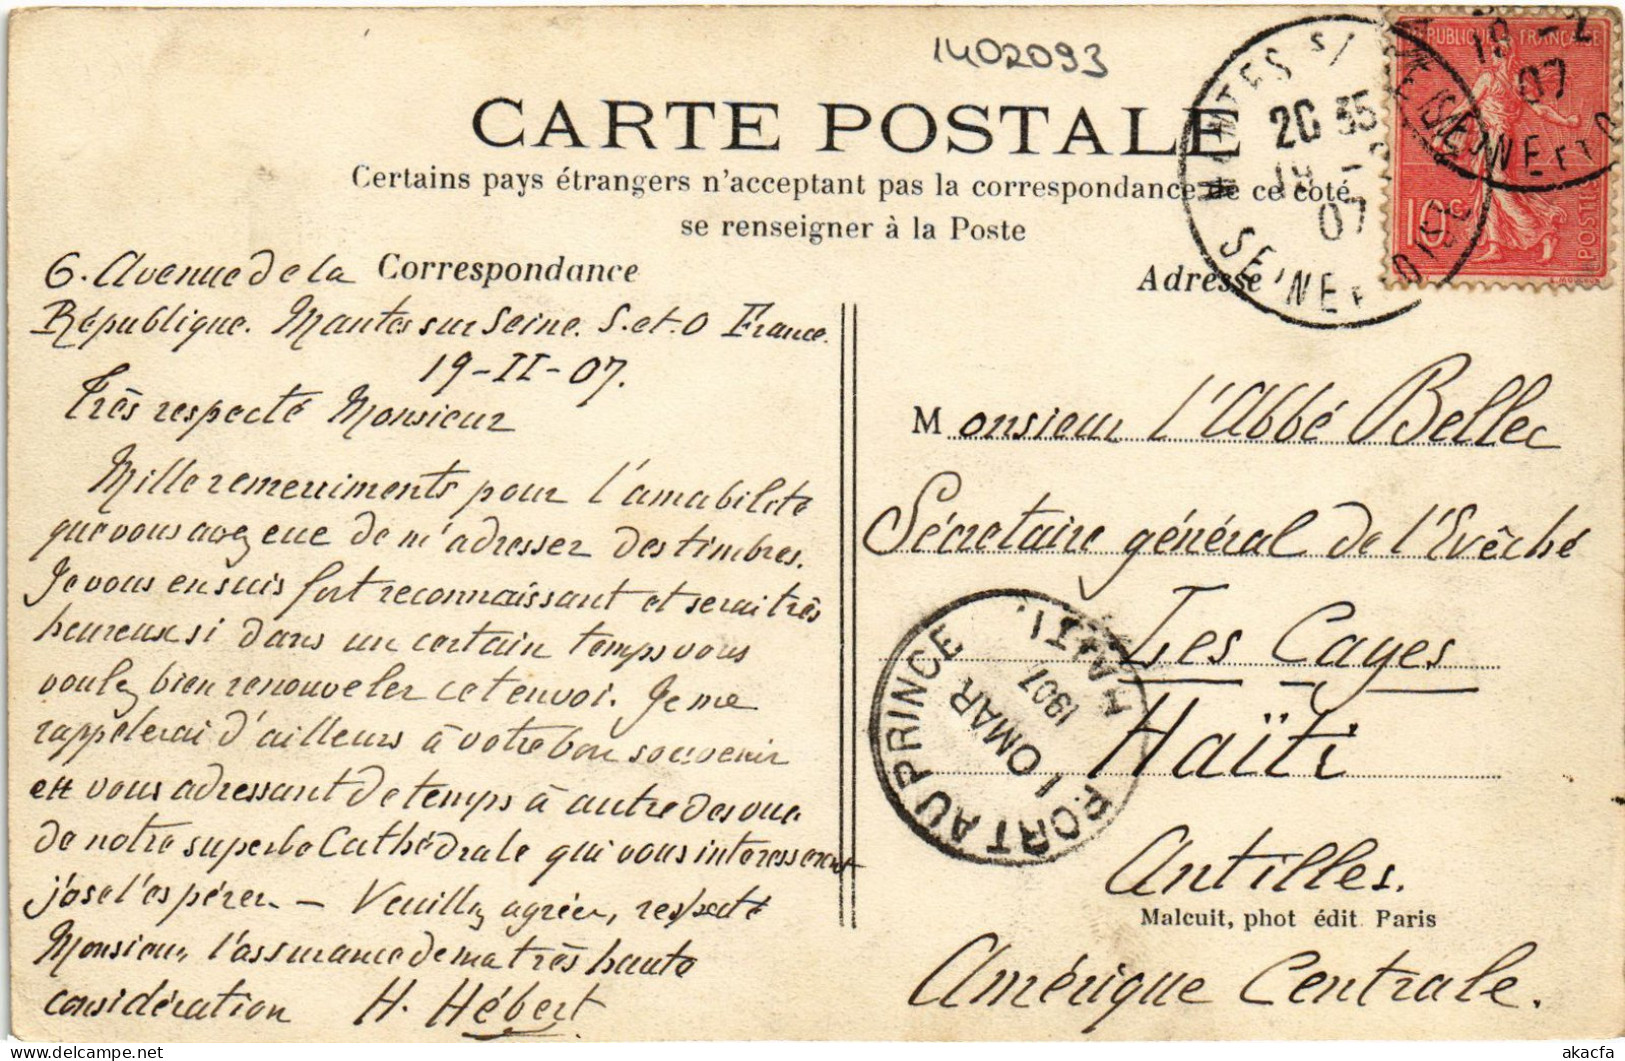 1402093
CARTE POSTALE
Certains pays étrangers n'acceptant pas la correspondance de ce côté,
se renseigner à la Poste
Correspondance
Adresse
6. Avenue de la
République. Mantes sur Seine. S. et. O France.
19-II-07.
Très respecté Monsieur
Mille remerciments pour l'amabilité
que vous avez eue de m'adresser des timbres.
Je vous en suis fort reconnaissant et serai très
heureux si dans un certain temps vous
voulez bien renouveler cet envoi. Je me
rappelerai d'ailleurs à votre bon souvenir
en vous adressant de temps à autre des vues
de notre superbe Cathédrale qui vous intéresseront
j'ose l'espérer — Veuillez agréer, respecté
Monsieur, l'assurance de ma très haute
considération H. Hébert
Monsieur l'Abbé Bellec
Sécretaire général de l'Evêché
Les Cayes
Haïti
Antilles.
Amérique Centrale.
Malcuit, phot édit Paris
REPUBLIQUE FRANÇAISE
10 c
POSTES
MANTES S/ SEINE
20 35
19 -
07
SEINE ET OISE
19 - 2
07
PORT AU PRINCE
HAITI
10 MAR
1907
akacfa